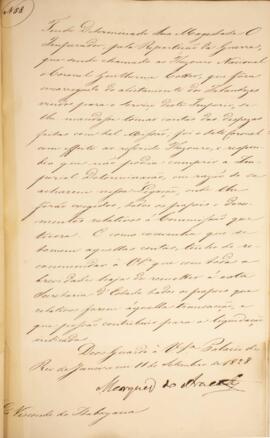 N 88
Tendo Determinado Sua Magestade O
Imperador, pela Repartição da Guerra,
que sendo chamado ao Thezouro Nacional
o Coronel Guilherme Cotter, que fora
encarregado do alistamento dos Irlandezes
vindos para o Serviço deste Imperio, se
lhe mandasse tomar contas das despezas
feitas com tal Missão, foi o dito Coronel
com effeito ao referido Thezouro, e respon-
deo que não podia cumprir a Im-
perial Determinação, em razão de se
acharem nessa Legação, onde lhe
forão exigidos, todos os papeis e docu-
mentos relativos á Commissão que
tivera. E como convenha que se
tomem aquellas contas, tenho de re-
commendar a VSª que com toda a
brevidade haja de remetter á esta
Secretaria d'Estado todos os papeis que
relativos forem áquella transacção, e
que possão contribuir para a liquidação
indicada.
Deos Guarde a VSª Palacio do
Rio de Janeiro em 11 de Setembro de 1828
Marquez do Aracaty
Visconde de Itabayana